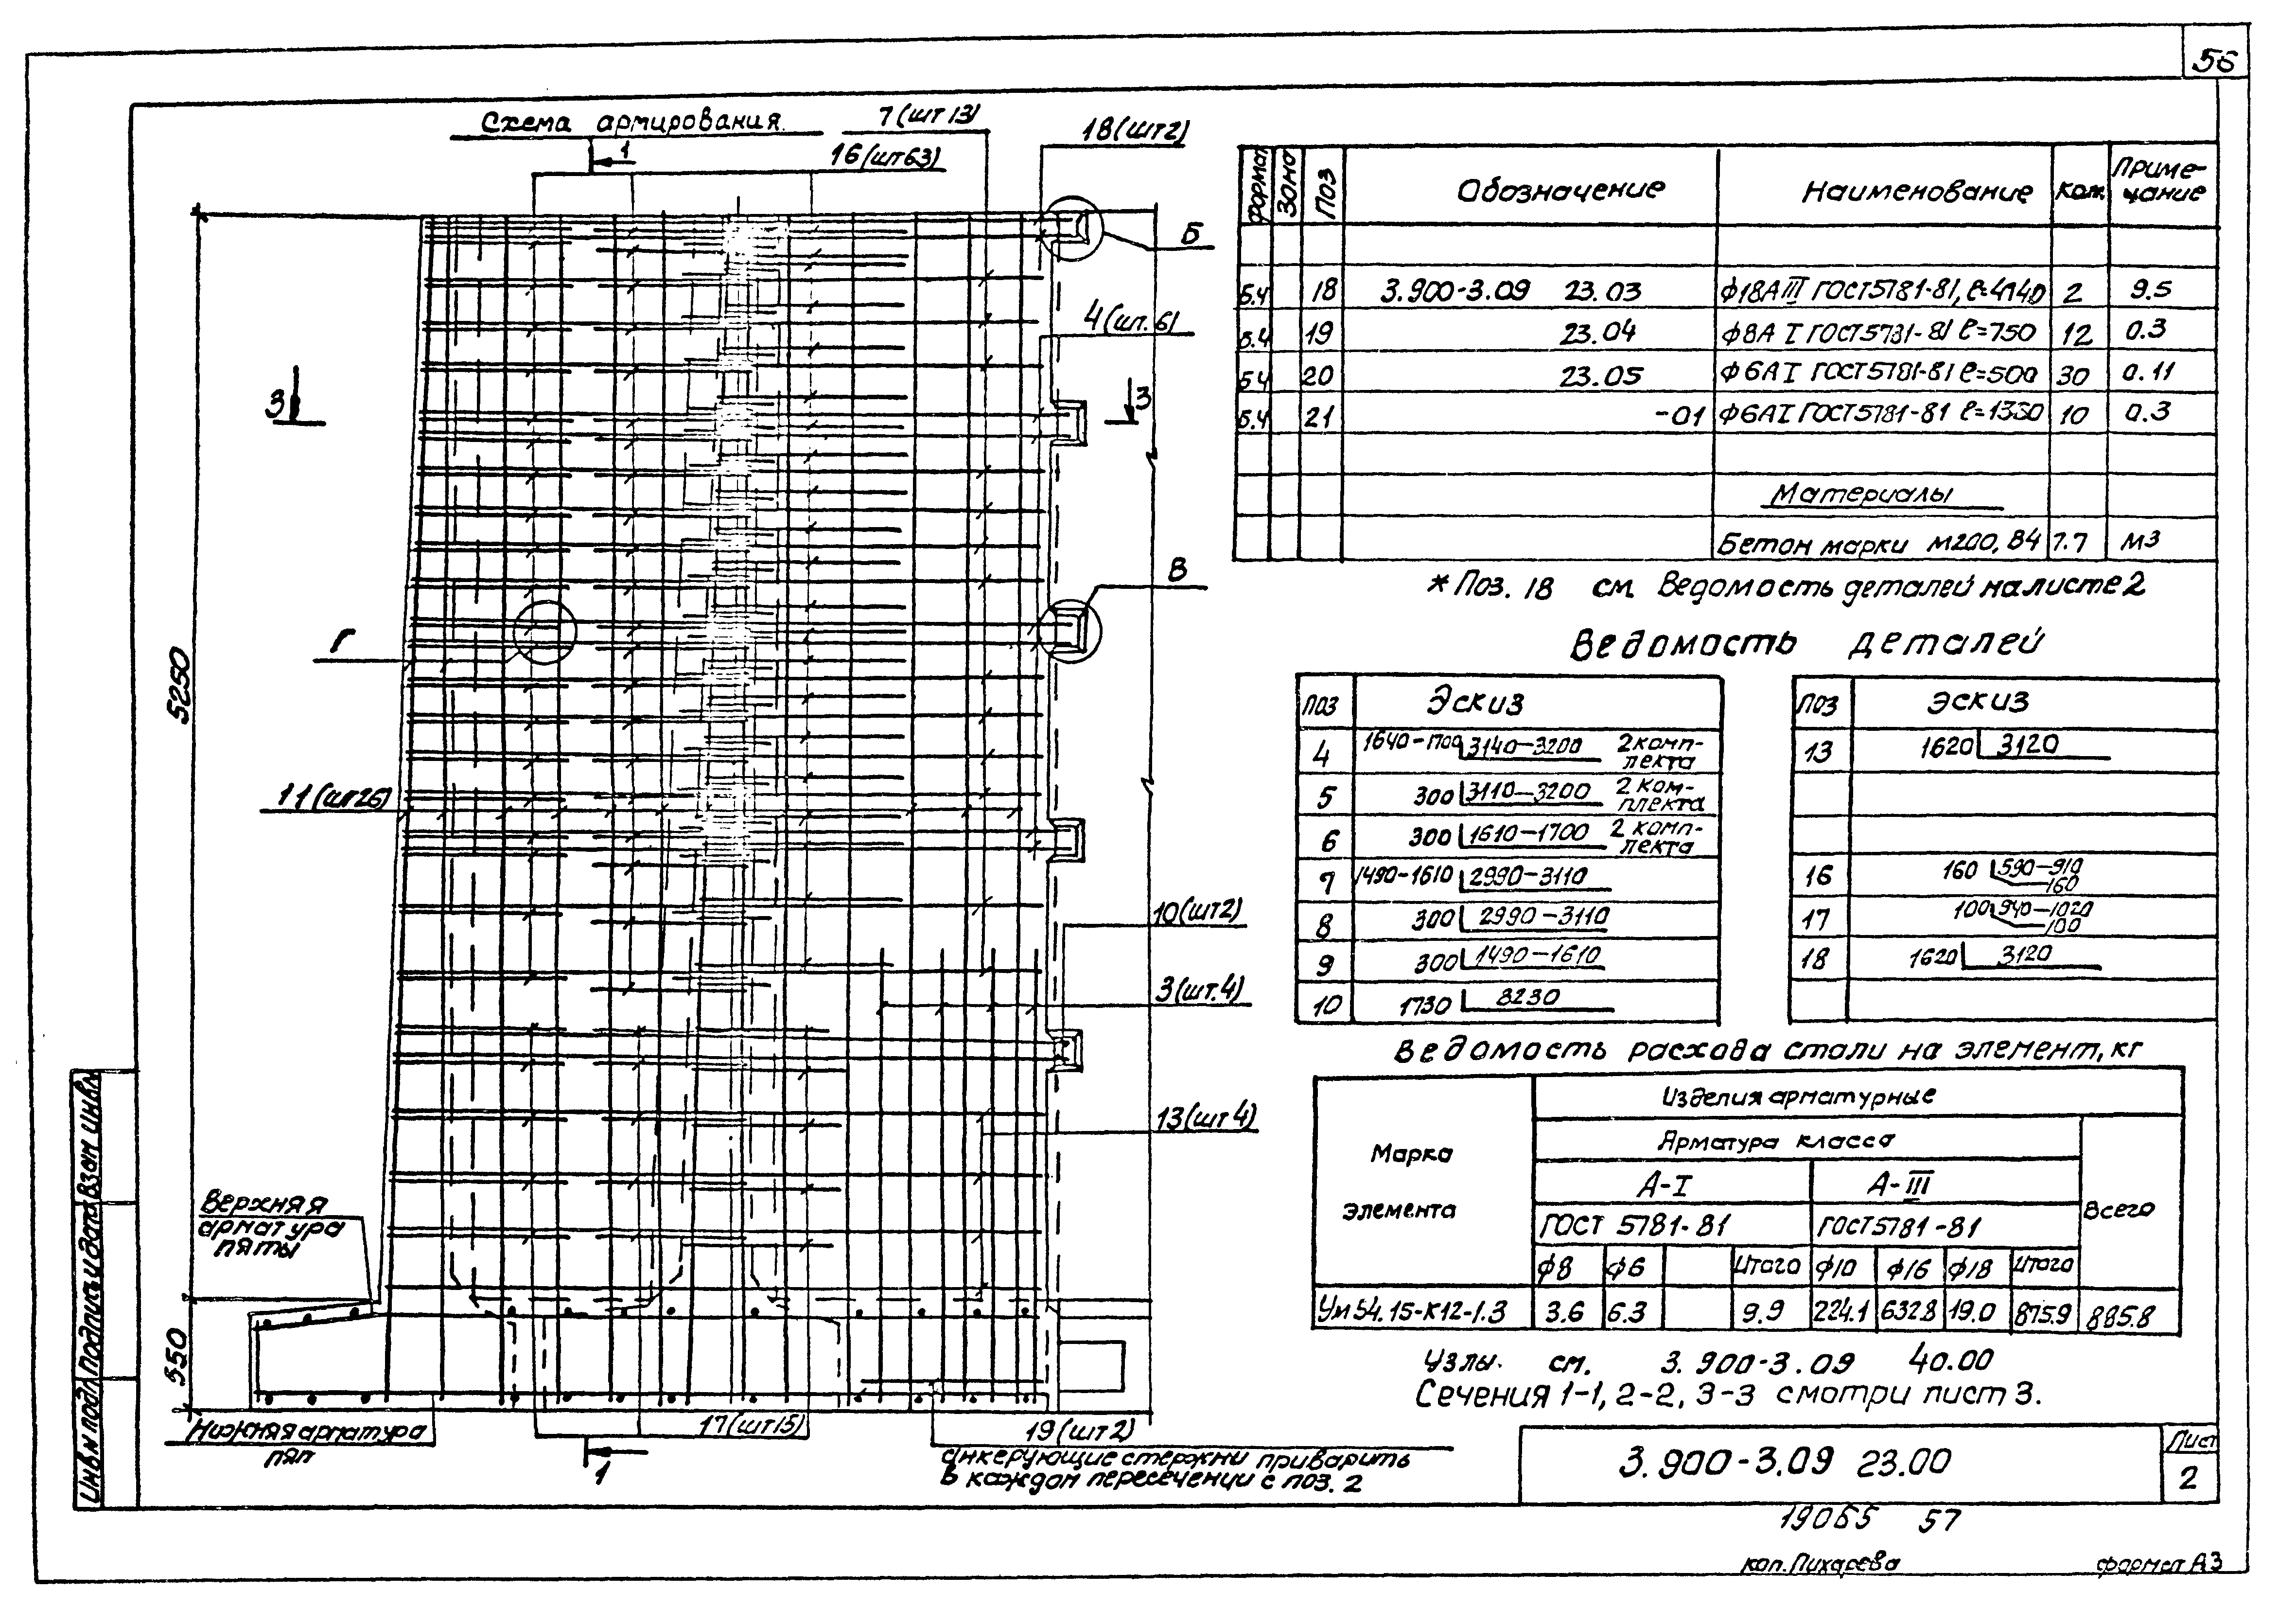 56
Схема армирования.
7 (шт 13)
18 (шт 2)
16 (шт 63)
1
Б
4 (шт. 6)
3
3
5250
В
Г
11 (шт 26)
10 (шт 2)
3 (шт. 4)
13 (шт 4)
Верхняя
арматура
пяты
550
Нижняя арматура
пят
17 (шт 15)
19 (шт 2)
анкерующие стержни приварить
в каждом пересечении с поз. 2
1
Формат Зона Поз Обозначение Наименование Кол. Приме-
чание
Б.Ч 18 3.900-3.09 23.03 ф18АIII ГОСТ5781-81, ℓ=4740 2 9.5
Б.Ч 19 23.04 ф8АI ГОСТ5781-81 ℓ=750 12 0.3
Б.Ч 20 23.05 ф6АI ГОСТ5781-81 ℓ=500 30 0.11
Б.Ч 21 -01 ф6АI ГОСТ5781-81 ℓ=1330 10 0.3
Материалы
Бетон марки М200, В4 7.7 м3
* Поз. 18 см. Ведомость деталей на листе 2
Ведомость деталей
Поз Эскиз
4 1640-1700 3140-3200 2 комп-
лекта
5 300 3110-3200 2 ком-
плекта
6 300 1610-1700 2 комп-
лекта
7 1490-1610 2990-3110
8 300 2990-3110
9 300 1490-1610
10 1730 3230
Поз Эскиз
13 1620 3120
16 160 590-910
160
17 100 940-1020
100
18 1620 3120
Ведомость расхода стали на элемент, кг
Марка
элемента
Изделия арматурные
Арматура класса
Всего
А-I А-III
ГОСТ 5781-81 ГОСТ 5781-81
ф8 ф6 Итого ф10 ф16 ф18 Итого
Уи 54.15-К12-1.3 3.6 6.3 9.9 224.1 632.8 19.0 875.9 885.8
Узлы. см. 3.900-3.09 40.00
Сечения 1-1, 2-2, 3-3 смотри лист 3.
3.900-3.09 23.00
Лист
2
Инв.N подл. Подпись и дата Взам. инв.N
19065 57
коп. Пихарева
формат А3